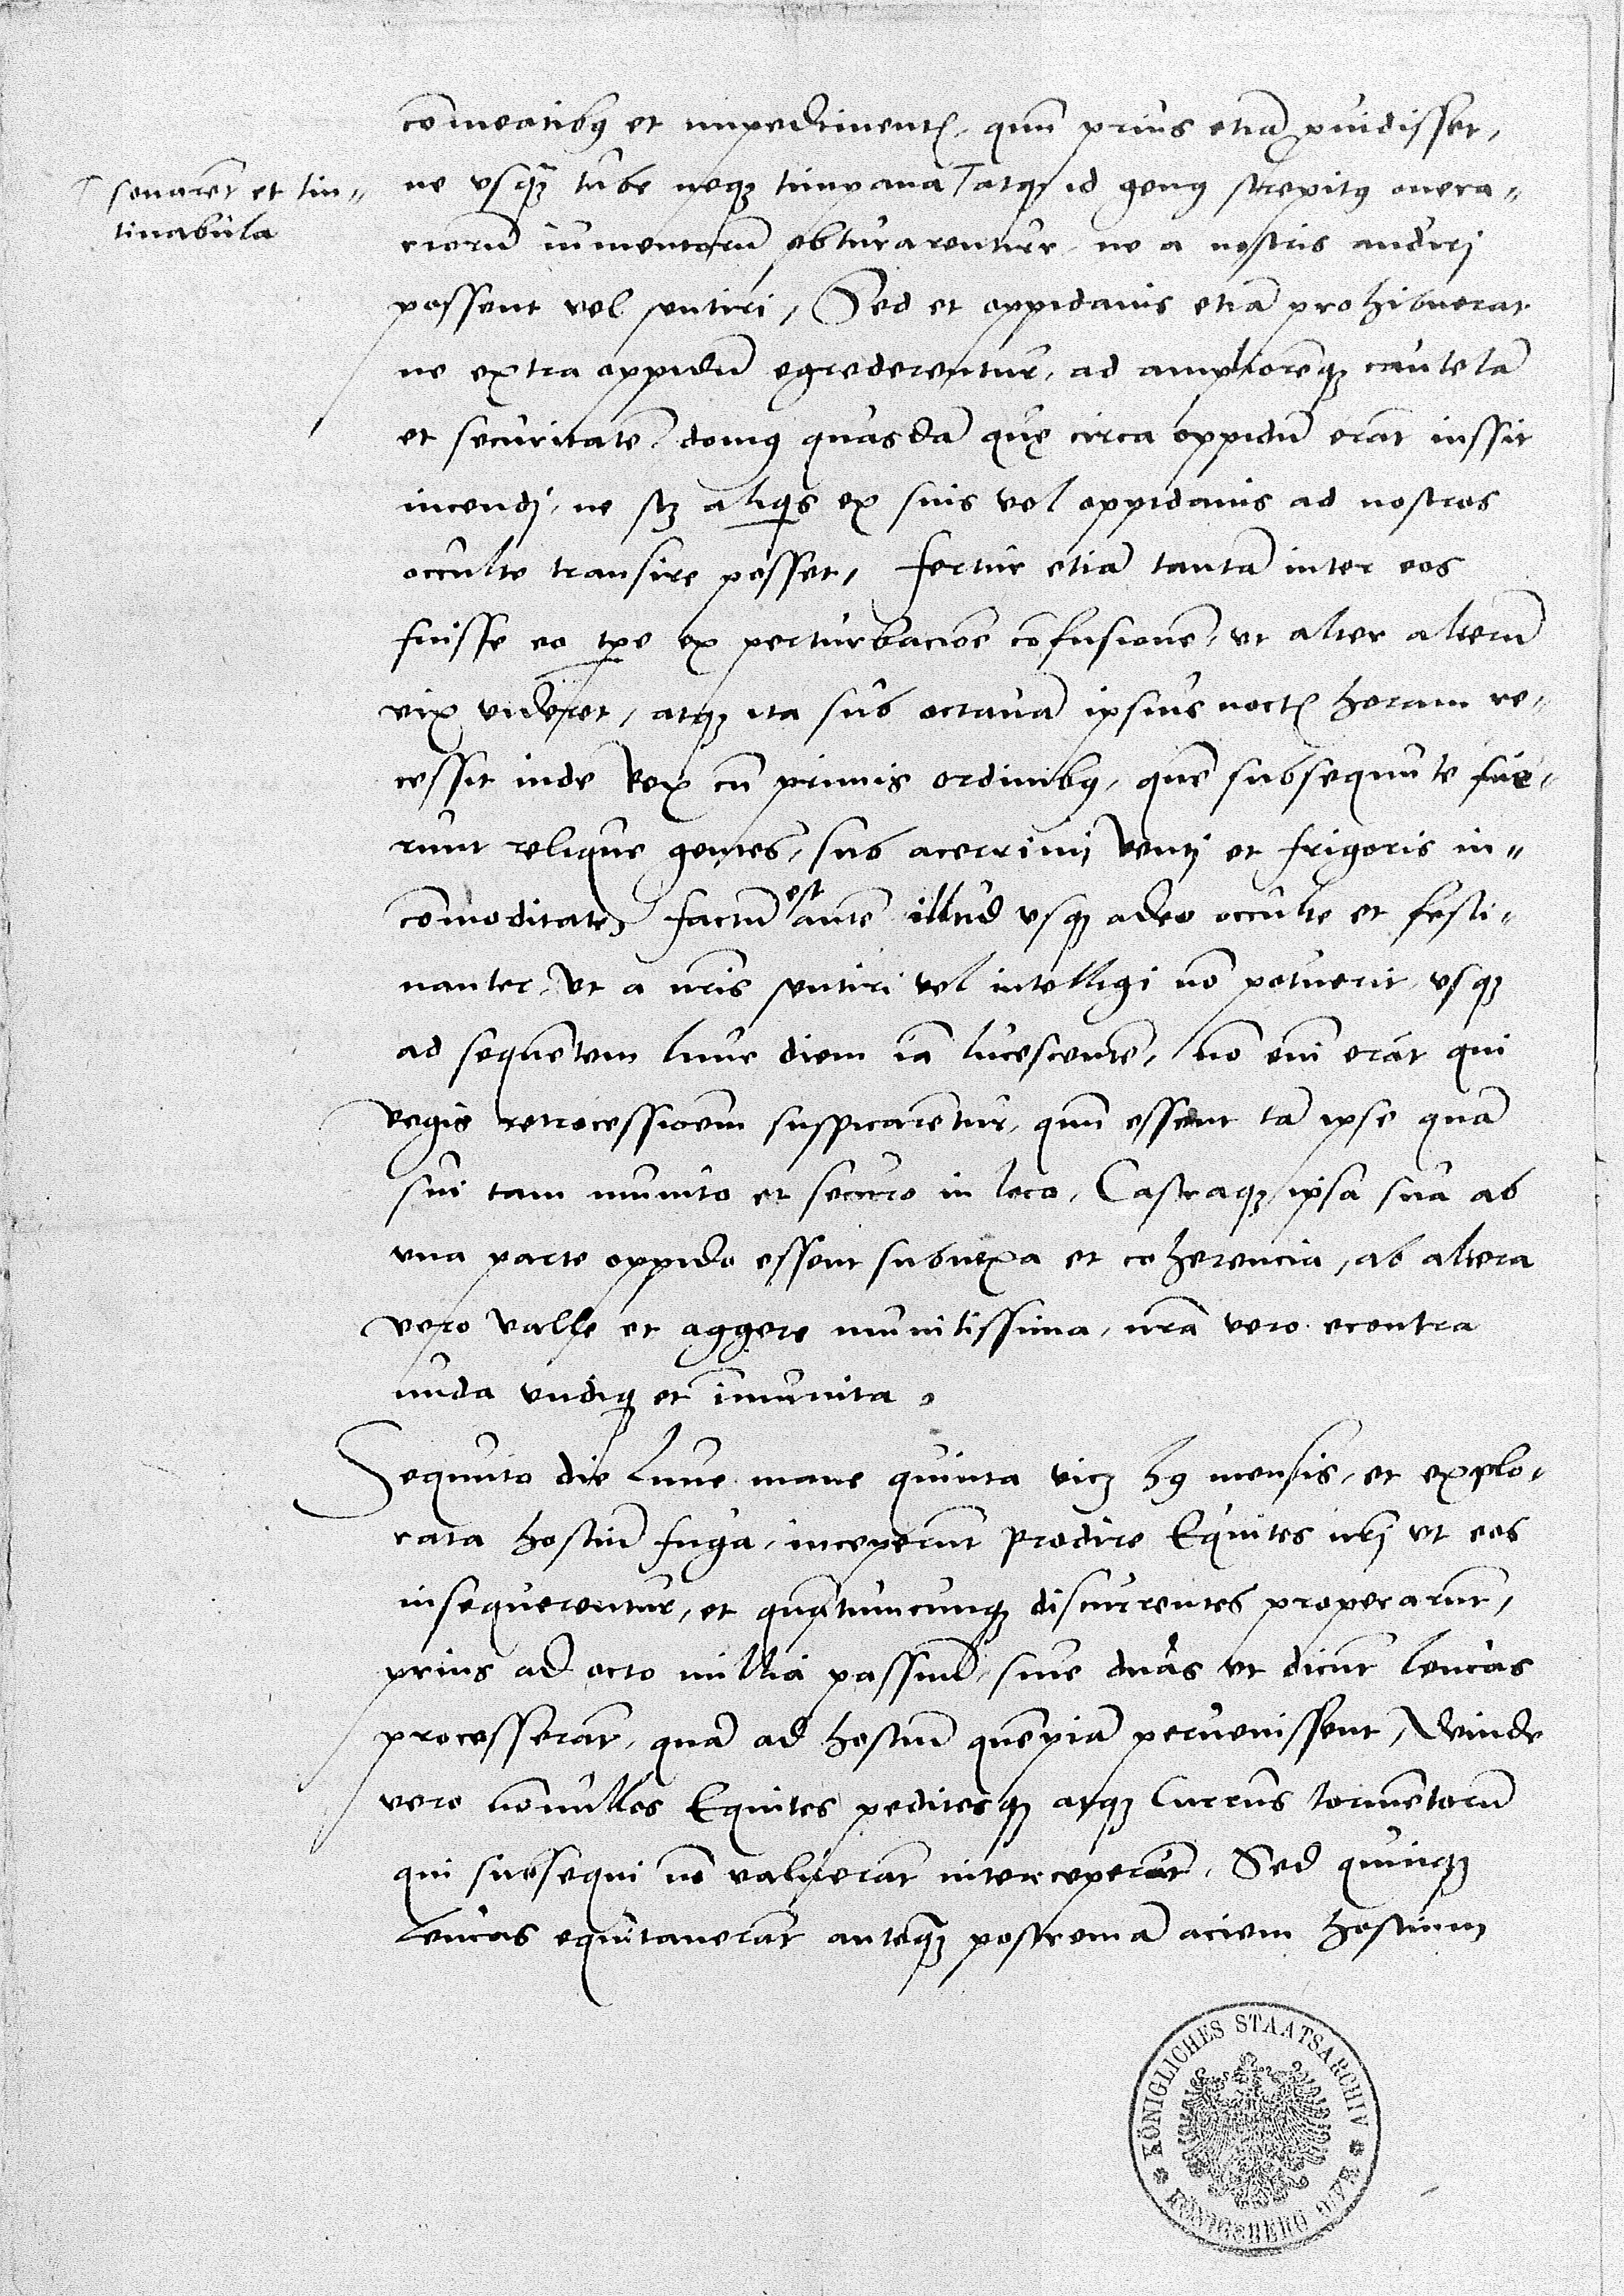 co̅meatibꝯ et impedimentꝭ, quu̅ prius etia̅ ꝓuidisset,
ne vsq̃ȝ tube neqȝ timpana ⸆ atqȝ id genꝯ strepitꝯ onera-
⸆ sonare̅t et tin-
tinabula
rioru̅ iumentoru̅ obturarentur, ne a nostris audirj
possent vel sentiri, Sed et oppidanis etia̅ prohibuerat
ne extra oppidu̅ egrederentur, ad ampliore̅qȝ cautela̅
et securitate̅ domꝯ quasda̅ quę circa oppidu̅ era̅t iussit
incendj, ne sꝫ aliqis ex suis vel oppidanis ad nostros
occulte transire posset, fertur etia̅ tanta̅ inter eos
fuisse eo tp̅e ex perturbacio̅e co̅fusione̅, vt alter alteru̅
vix videret, atqȝ ita sub octaua̅ ipsius noctꝭ horam re-
cessit inde Rex cu̅ primis ordinibꝯ, que̅ subsequute fue-
runt relique gentes, sub acerrimj ventj et frigoris in-
co̅moditate, factu̅ est aute̅ illud vsqȝ adeo occulte et festi-
nanter, vt a nr̅is sentiri vel intelligi no̅ potuerit, vsqȝ
ad seque̅tem lune diem ia̅ lucescente̅, no̅ eni̅ era̅t qui
regis retrocessioe̅m suspicare̅tur, quu̅ essent ta̅ ipse qua̅
sui tam munito et securo in loco, Castraqȝ ipsa sua ab
vna parte oppido essent subnixa et coherencia, ab altera
vero valle et aggere munitissima, nr̅a vero econtra
nuda vndiqȝ et i̅munita.
Sequuto die Lune mane quinta viꝫ hꝯ mensis, et explo-
rata hostiu̅ fuga, inceperu̅t prodire Equites nr̅j vt eos
insequerentur, et qua̅tumcunqȝ discurrentes properaru̅t,
prius ad octo millia passuu̅, siue duas vt dicu̅t leucas
processera̅t, qua̅ ad hostiu̅ que̅pia̅ peruenissent, Deinde
vero no̅nullos Equites peditesqȝ atqȝ Currus torme̅toru̅
qui subsequi no̅ valuera̅t intercepera̅t, Sed quinqȝ
leucas equitauera̅t anteq̃ȝ postrema̅ aciem hostium
KÖNIGLICHES STAATSARCHIV
KÖNIGSBERG O/PR.